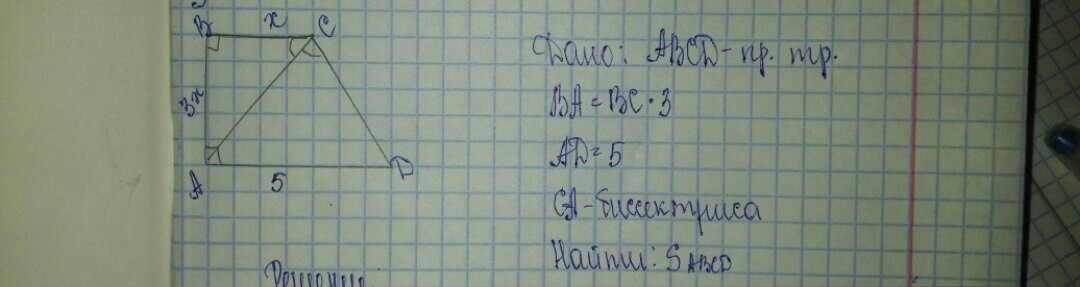 B x C
3x
A 5 D
Дано: ABCD - пр. тр.
BA = BC · 3
AD = 5
CA - биссектриса
Найти: S ABCD
Решение